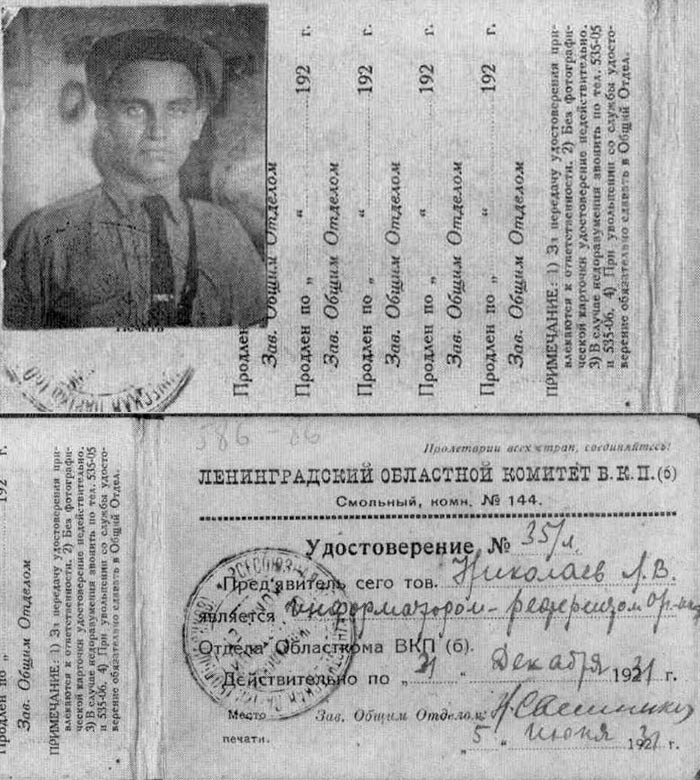 Продлен
Зав. Общим Отделом
Продлен по „ “ 192 г.
Зав. Общим Отделом
Продлен по „ “ 192 г.
Зав. Общим Отделом
Продлен по „ “ 192 г.
Зав. Общим Отделом
Продлен по „ “ 192 г.
Зав. Общим Отделом
ПРИМЕЧАНИЕ: 1) За передачу удостоверения при-
влекаются к ответственности. 2) Без фотографи-
ческой карточки удостоверение недействительно.
3) В случае недоразумения звонить по тел. 535-05
и 535-06. 4) При увольнении со службы удосто-
верение обязательно сдавать в Общий Отдел.
Продлен по „ 192 г.
Зав. Общим Отделом
ПРИМЕЧАНИЕ: 1) За передачу удостоверения при-
влекаются к ответственности. 2) Без фотографи-
ческой карточки удостоверение недействительно.
3) В случае недоразумения звонить по тел. 535-05
и 535-06. 4) При увольнении со службы удосто-
верение обязательно сдавать в Общий Отдел.
586-86
Пролетарии всех стран, соединяйтесь!
ЛЕНИНГРАДСКИЙ ОБЛАСТНОЙ КОМИТЕТ В.К.П.(б)
Смольный, комн. № 144.
Удостоверение № 35/л
Пред'явитель сего тов. Николаев Л.В.
является информатором-референтом
Отдела Областкома ВКП (б).
Действительно по „31“ Декабря 1931 г.
Место Зав. Общим Отделом:
печати. „5“ июня 1931 г.